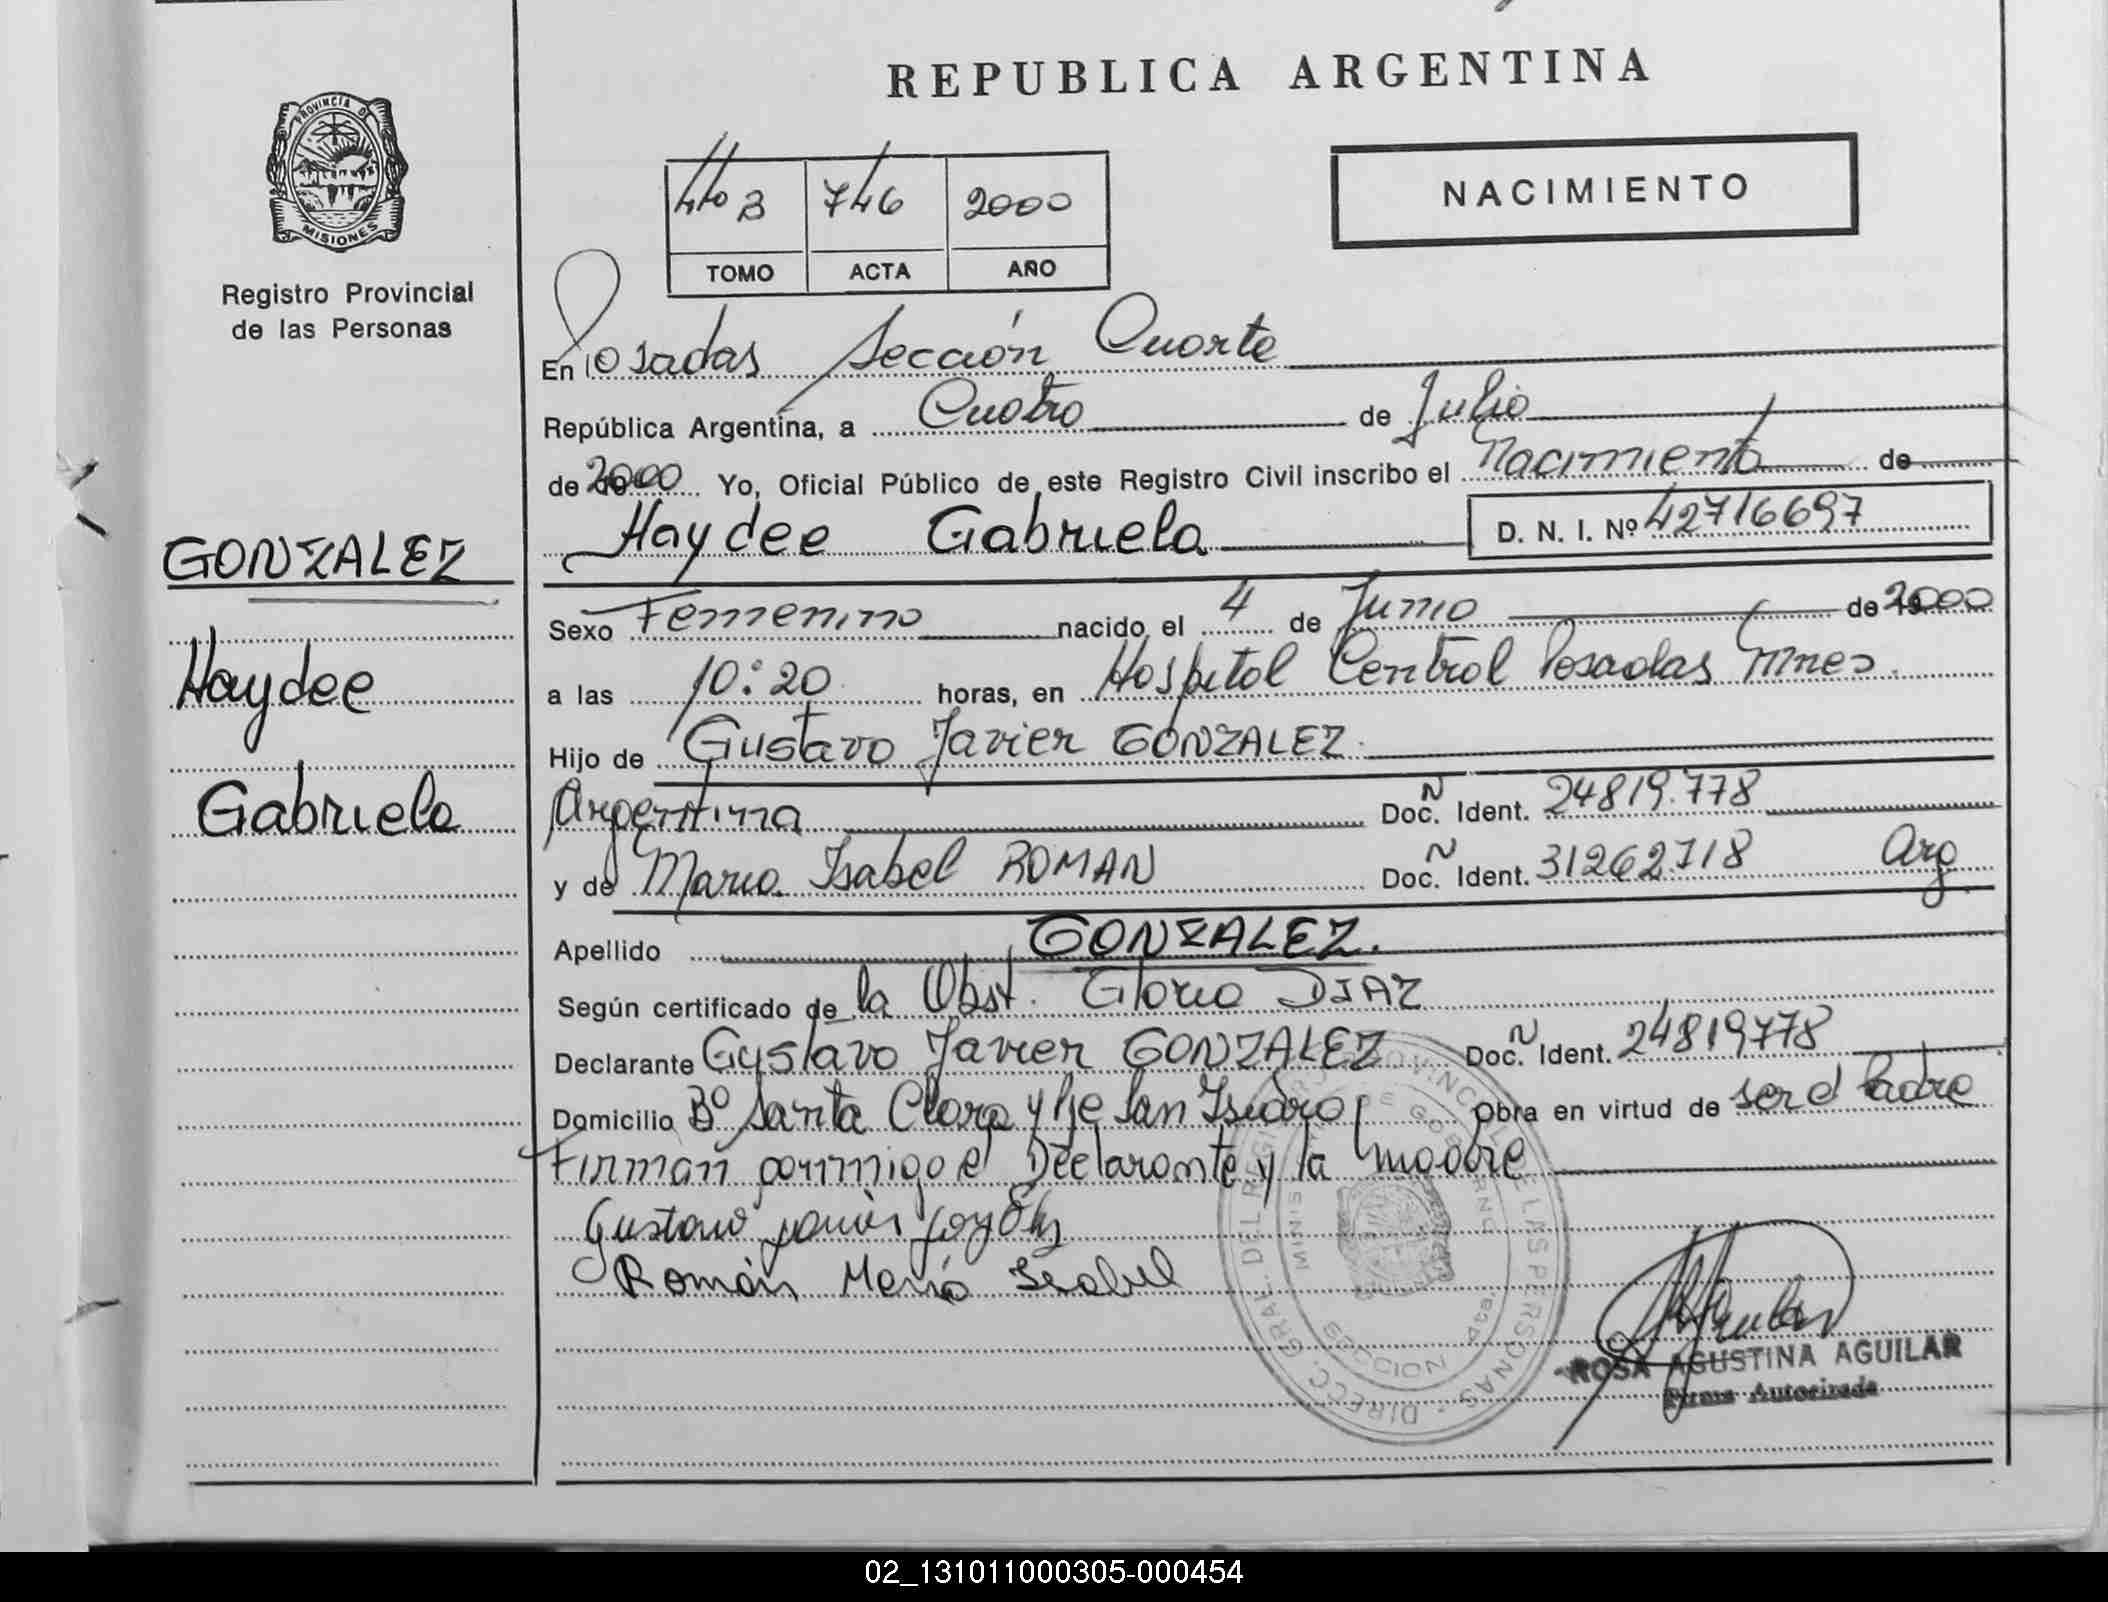 REPUBLICA ARGENTINA
PROVINCIA DE
MISIONES
Registro Provincial
de las Personas
NACIMIENTO
4to B 746 2000
TOMO ACTA AÑO
En Posadas Sección Cuarta
República Argentina, a Cuatro de Julio
de 2000 Yo, Oficial Público de este Registro Civil inscribo el Nacimiento de
Haydee Gabriela D. N. I. Nº 42716697
GONZALEZ
Haydee
Gabriela
Sexo Femenino nacido el 4 de Junio de 2000
a las 10:20 horas, en Hospital Central Posadas Mnes.
Hijo de Gustavo Javier GONZALEZ.
Argentina Doc. Ident. 24819.778
y de Maria Isabel ROMAN Doc. Ident. 31262.718 Arg
Apellido GONZALEZ.
Según certificado de la Obst. Gloria DIAZ
Declarante Gustavo Javier GONZALEZ Doc. Ident. 24819778
Domicilio Bº Santa Clara y Pje San Isidro Obra en virtud de ser el Padre
Firman conmigo el Declarante y la madre
Gustavo
Román María Isabel
DIRECC. GRAL. DEL REGISTRO PROVINCIAL DE LAS PERSONAS
ROSA AGUSTINA AGUILAR
Firma Autorizada
02_131011000305-000454